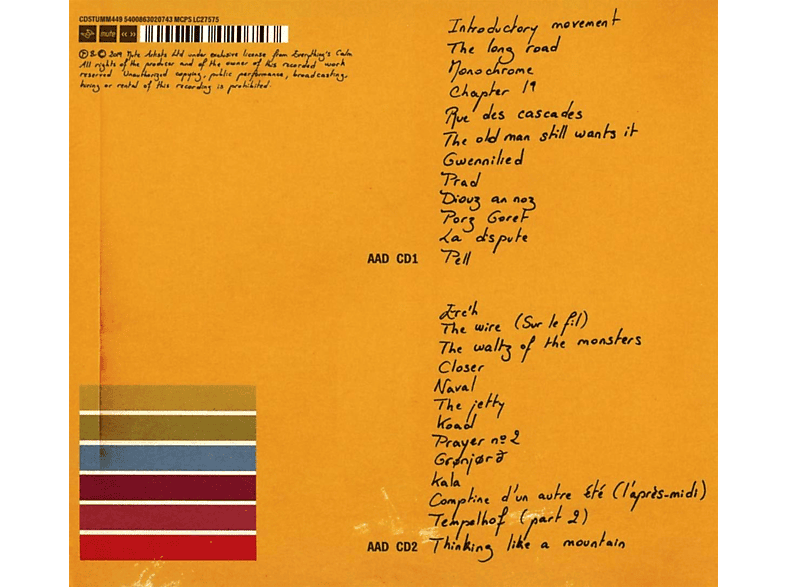 CDSTUMM449 5400863020743 MCPS LC27575
mute
℗ & © 2019 Mute Artists Ltd under exclusive license from Everything's Calm
All rights of the producer and of the owner of this recorded work
reserved. Unauthorized copying, public performance, broadcasting,
hiring or rental of this recording is prohibited.
Introductory movement
The long road
Monochrome
Chapter 19
Rue des cascades
The old man still wants it
Gwennilied
Prad
Diouz an noz
Porz Goret
La dispute
AAD CD1 Pell
Erc'h
The wire (Sur le fil)
The waltz of the monsters
Closer
Naval
The jetty
Koad
Prayer nº2
Grønjørð
Kala
Comptine d'un autre été (l'après-midi)
Tempelhof (part 2)
AAD CD2 Thinking like a mountain